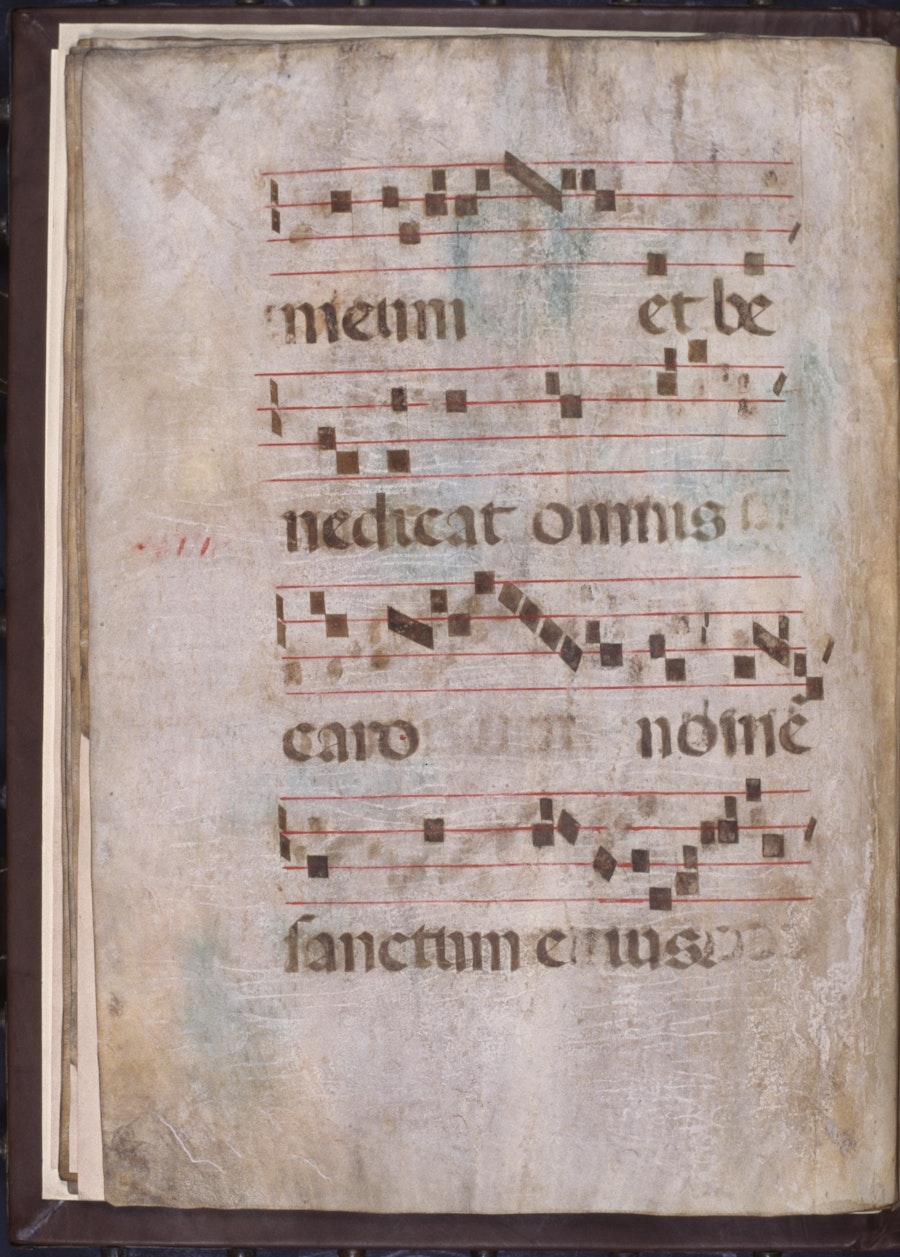 meum et be
nedicat omnis
caro nomē
sanctum eius